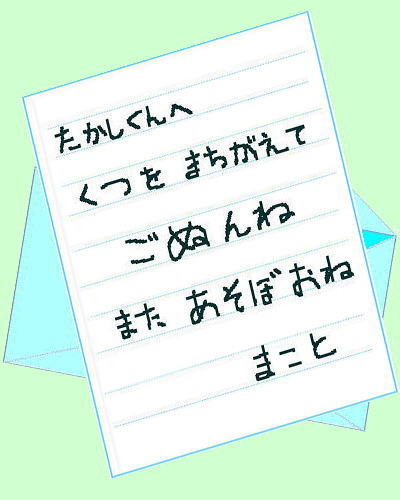 たかしくんへ
くつを まちがえて
ごぬんね
また あそぼおね
まこと